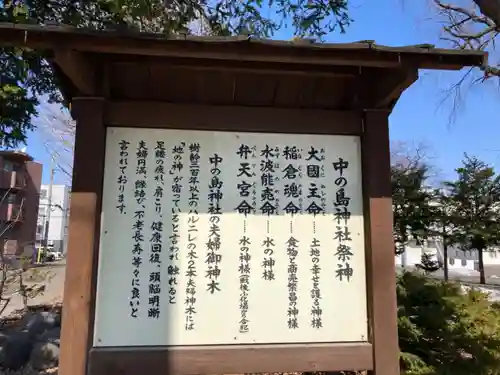 中の島神社祭神
大國主命…土地の幸せを護る神様
稲倉魂命…食物と商売繁昌の神様
水波能売命…水の神様
弁天宮命…水の神様(戦後の花場の守り合祀)
中の島神社の夫婦御神木
樹齢三百年以上のハルニレの木2本
"地の神"が宿っていると言われ、触れると
足腰の疲れ、身体健康回復、頭脳明晰
夫婦円満、縁結び、不老長寿等々に良いと
言われております。